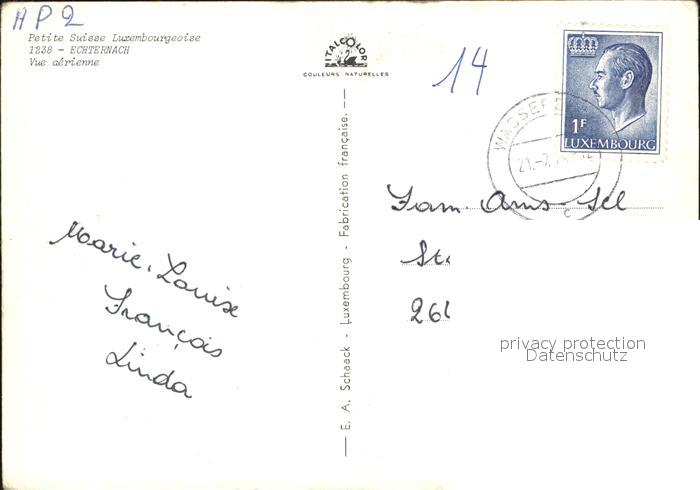 HP2
Petite Suisse Luxembourgeoise
1238 - ECHTERNACH
Vue aérienne
ITALCOLOR
COULEURS NATURELLES
14
1F
LUXEMBOURG
WASSER
21.-2.
c
Fam. Ams
St.
Marie-Louise
François
Linda
— E. A. Schaack - Luxembourg - Fabrication française. —
privacy protection
Datenschutz